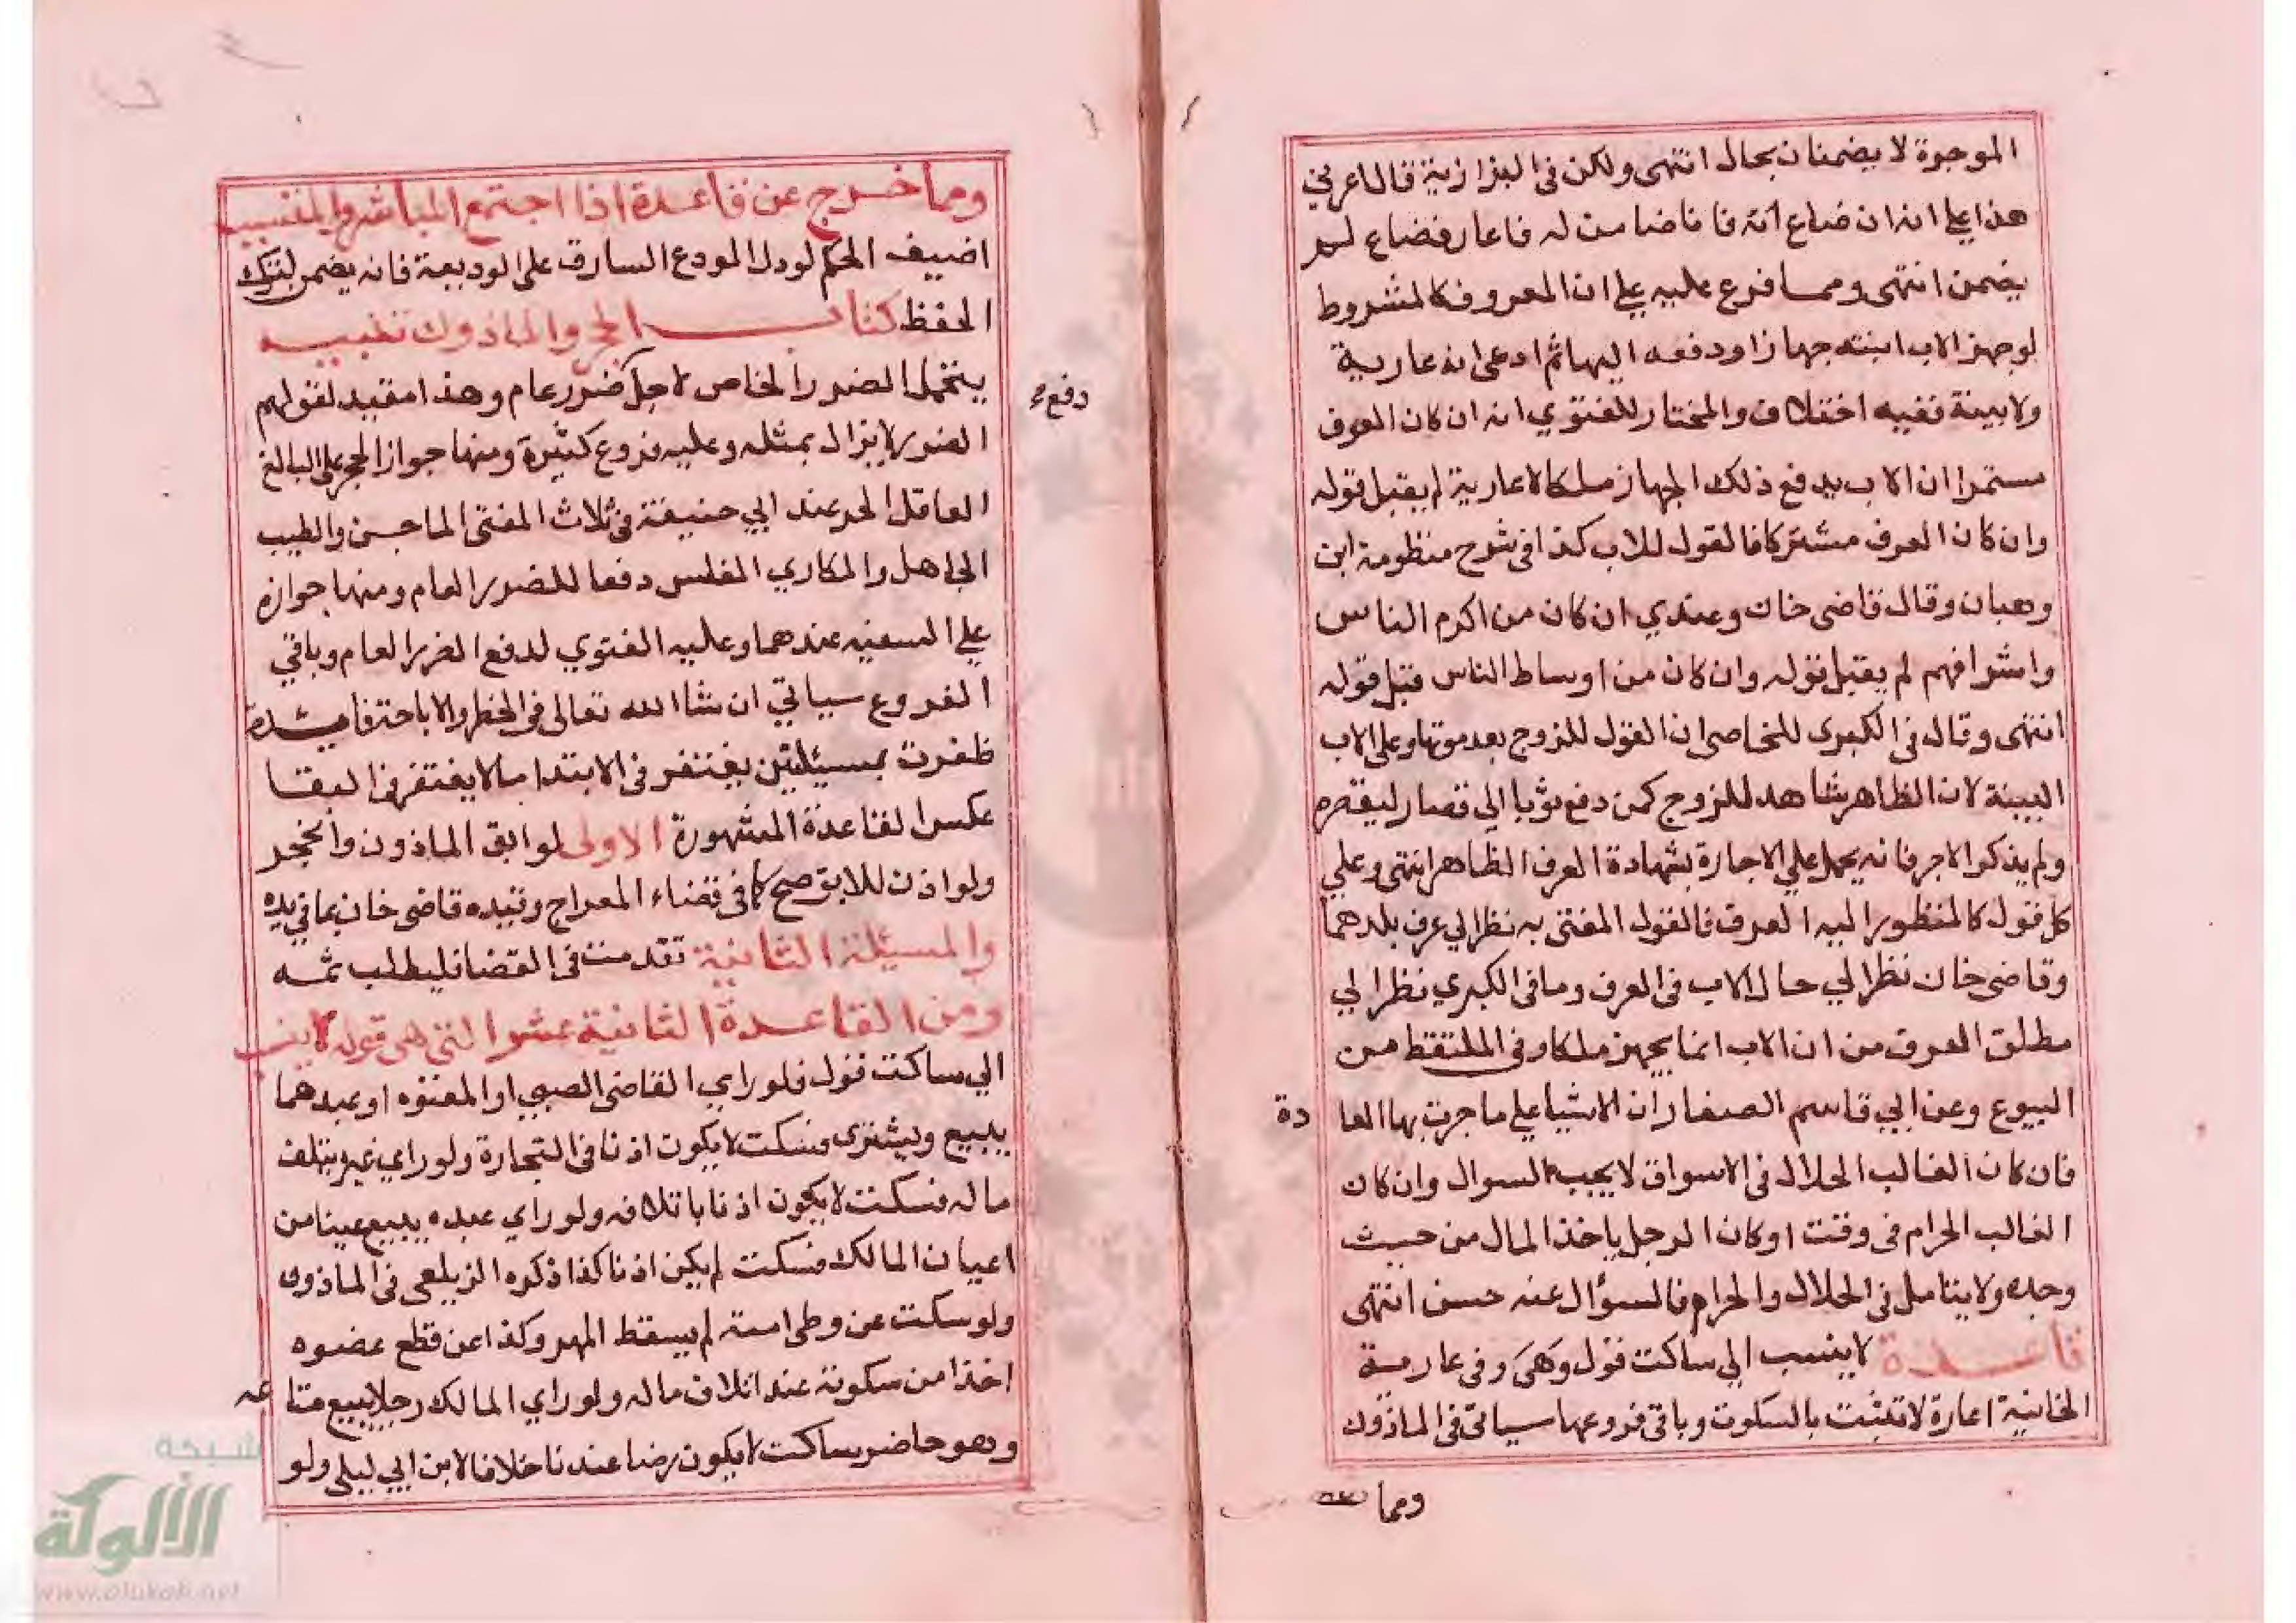 الموجرة لا يضمنان بحال انتهى ولكن في البزازية قال اعرني
هذا علي انه ان ضاع انه فانا ضامن له فاعاره فضاع لم
يضمن انتهى ومما فرع عليه علي ان المعروف كالمشروط
لوجهز الاب ابنته جهازا ودفعه اليها ثم ادعى انه عارية
ولا بينة ففيه اختلاف والمختار للفتوي انه ان كان العرف
مستمرا ان الاب يدفع ذلك الجهاز ملكا لا عارية لم يقبل قوله
وان كان العرف مشتركا فالقول للاب كذا في شرح منظومة ابن
وهبان وقال قاضي خان وعندي ان كان من اكرم الناس
واشرافهم لم يقبل قوله وان كان من اوساط الناس قبل قوله
انتهى وقال في الكبرى للخاصى ان القول للزوج بعد موتها وعلى الاب
البينة لان الظاهر شاهد للزوج كمن دفع ثوبا الي قصار ليقصره
ولم يذكر الاجر فانه يحمل علي الاجارة بشهادة العرف الظاهر انتهى وعلي
كل قول كالمنظور اليه العرف فالقول المفتى به نظر الي عرف بلدهما
وقاضي خان نظر الي حال الاب في العرف وما في الكبري نظر الي
مطلق العرف من ان الاب انما يجهز ملكا وفي الملتقط من
البيوع وعن ابي قاسم الصفار ان الاشيا علي ما جرت بها العا دة
فان كان الغالب الحلال في الاسواق لا يجب السوال وان كان
الغالب الحرام في وقت او كان الرجل ياخذ المال من حيث
وجده ولا يتامل في الحلال والحرام فالسؤال عنه حسن انتهى
قاعدة لا ينسب الي ساكت قول وهى وفي عارية
الخانية اعارة لا تثبت بالسكوت وباقى فروعها سياتى في الماذون
ومما
ومما خرج عن قاعدة اذا اجتمع المباشر والمتسبب
اضيف الحكم لو دل المودع السارق على الوديعة فانه يضمن لترك
الحفظ كتاب الحجر والماذون تنبيه
يتحمل الضرر الخاص لاجل ضرر عام وهذا مقيد لقولهم
دفع
الضرر لا يزال بمثله وعليه فروع كثيرة ومنها جواز الحجر على البالغ
العاقل الحر عند ابي حنيفة في ثلاث المفتى الماجن والطيب
الجاهل والمكاري المفلس دفعا للضرر العام ومنها جوازه
علي السفيه عندهما وعليه الفتوي لدفع الضرر العام وباقي
الفروع سياتي ان شا الله تعالى في الحظر والاباحة فايدة
ظفرت بمسئلتين يغتفر في الابتدا مالا يغتفر في البقا
عكس القاعدة المشهورة الاولى لو ابق الماذون وانحجر
ولو اذن للابق صح كما في قضاء المعراج وقيده قاضي خان بما في يده
والمسئلة الثانية تقدمت في القضا فليطلب ثمه
ومن القاعدة الثانية عشر التي هى قوله لا ينسب
الي ساكت قول فلو راي القاضي الصبي او المعتوه او عبدهما
يبيع ويشترى فسكت لا يكون اذنا في التجارة ولو راي غيره يتلف
ماله فسكت لا يكون اذنا باتلافه ولو راي عبده يبيع عينا من
اعيان المالك فسكت لم يكن اذنا كذا ذكره الزيلعي في الماذون
ولو سكت عن وطى امته لم يسقط المهر وكذا عن قطع عضوه
اخذا من سكوته عند اتلاف ماله ولو راي المالك رجلا يبيع متا عه
وهو حاضر ساكت لا يكون رضا عندنا خلافا لابن ابي ليلى ولو
شبكة
الألوكة
www.alukah.net